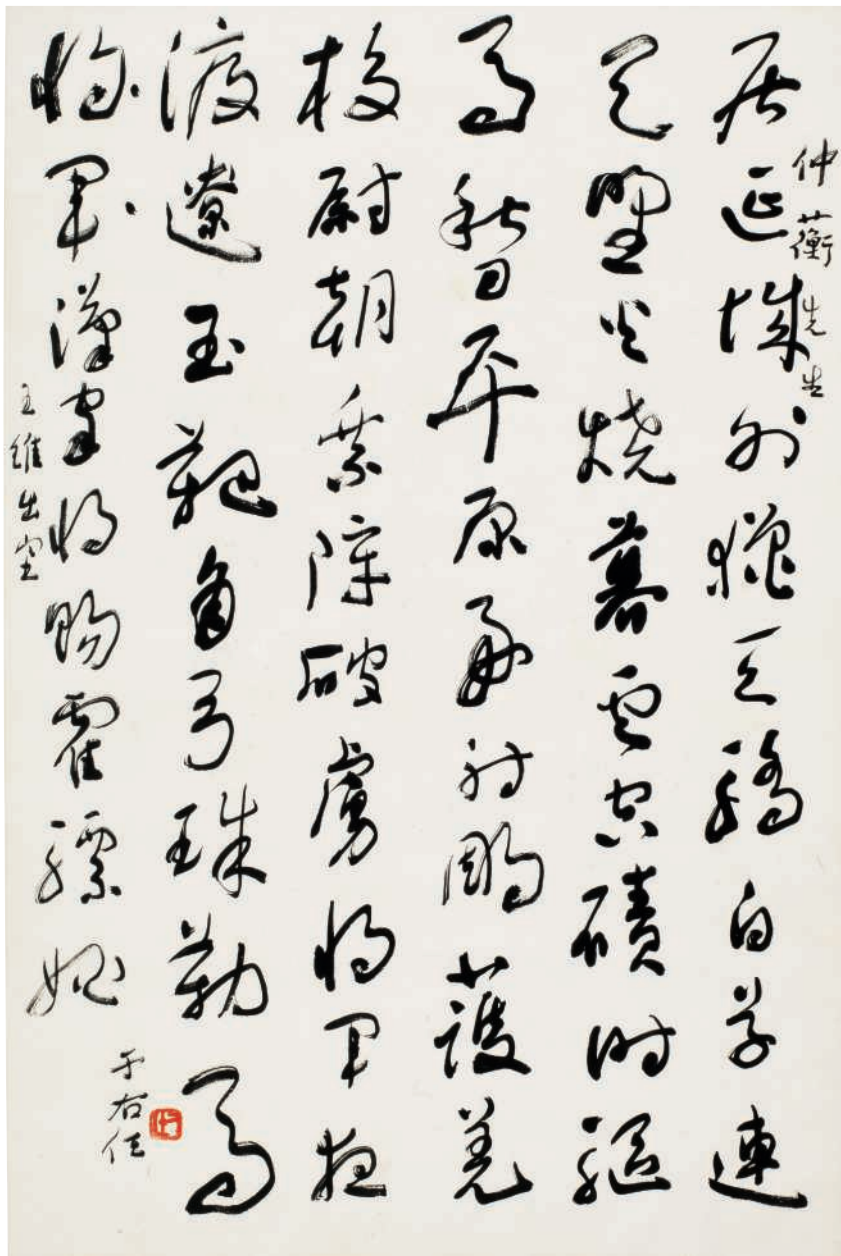 仲蘅先生
居延城外獵天驕白草連
天野火燒暮雲空磧時驅
馬秋日平原好射鵰護羌
校尉朝乘障破虜將軍夜
渡遼玉靶角弓珠勒馬
將軍漢家將賜霍驃姚
王維出塞
于右任